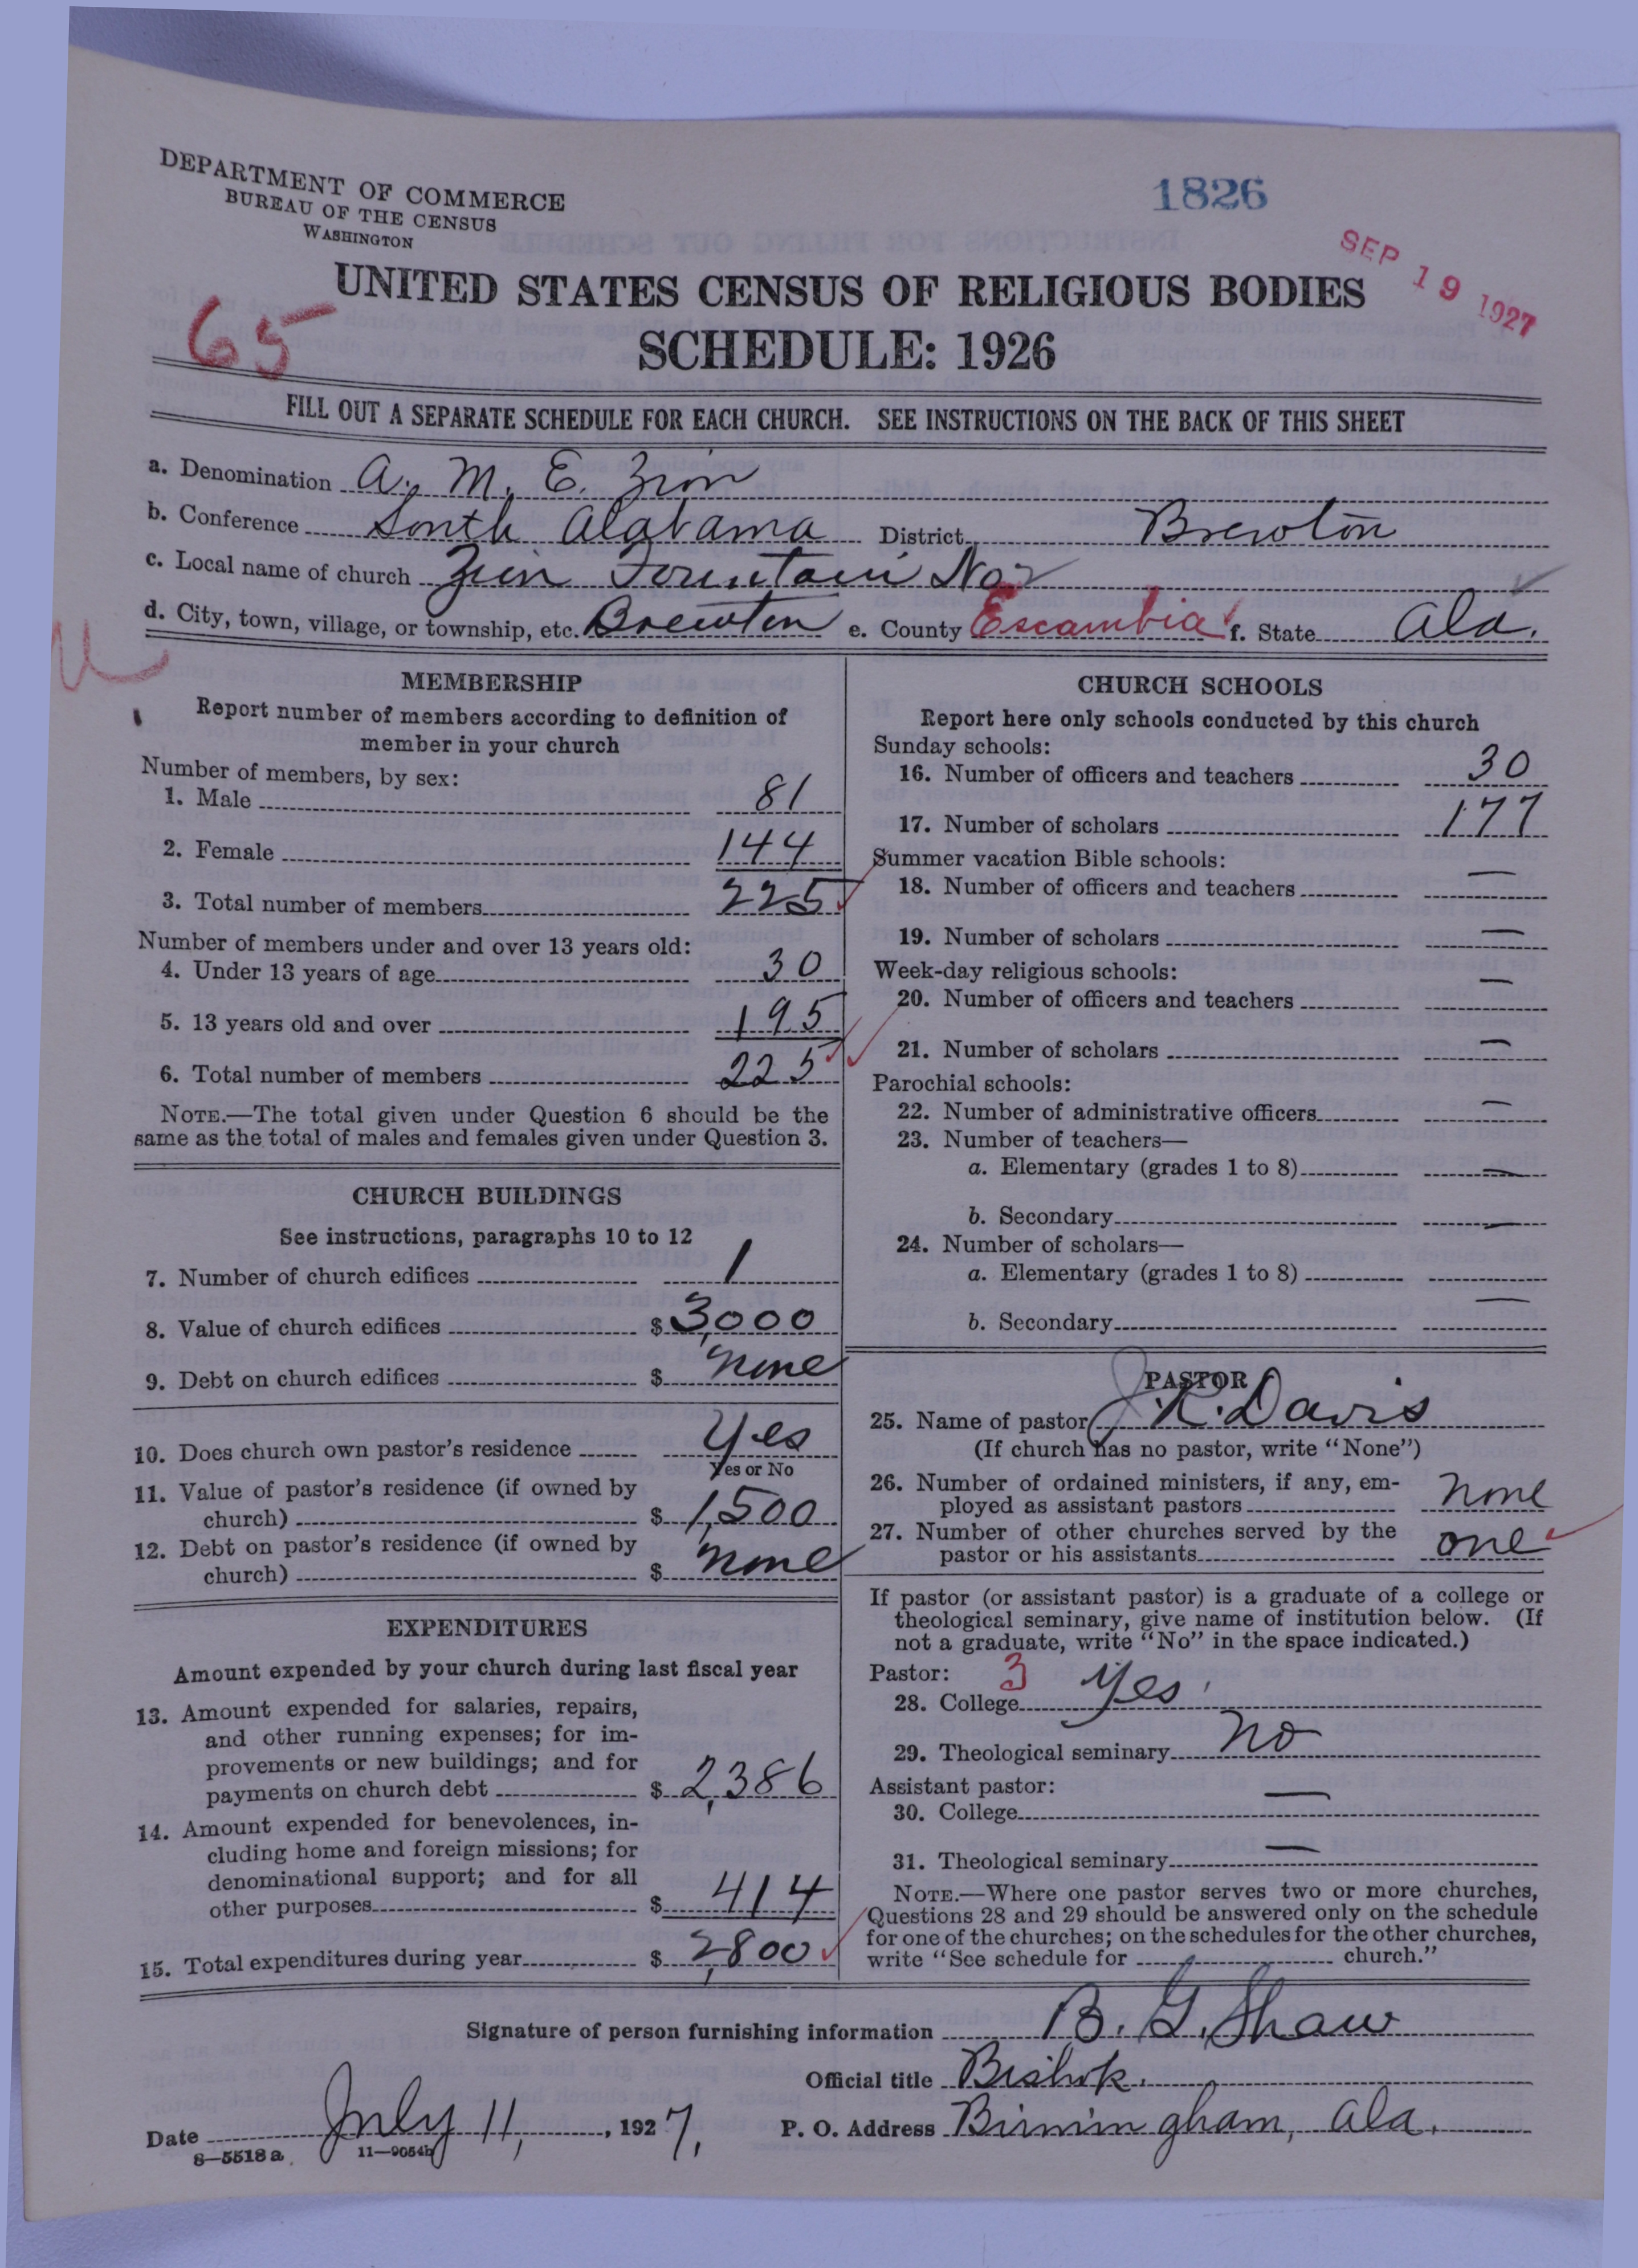 DEPARTMENT OF COMMERCE
BUREAU OF THE CENSUS
WASHINGTON
1826
SEP 19 1927
65
UNITED STATES CENSUS OF RELIGIOUS BODIES
SCHEDULE: 1926
FILL OUT A SEPARATE SCHEDULE FOR EACH CHURCH. SEE INSTRUCTIONS ON THE BACK OF THIS SHEET
a. Denomination A. M. E. Zion
b. Conference South Alabama District Brewton
c. Local name of church Zion Fountain No 2
d. City, town, village, or township, etc. Brewton e. County Escambia f. State Ala.
MEMBERSHIP
Report number of members according to definition of
member in your church
Number of members, by sex:
1. Male 81
2. Female 144
3. Total number of members 225
Number of members under and over 13 years old:
4. Under 13 years of age 30
5. 13 years old and over 195
6. Total number of members 225
NOTE.—The total given under Question 6 should be the
same as the total of males and females given under Question 3.
CHURCH BUILDINGS
See instructions, paragraphs 10 to 12
7. Number of church edifices 1
8. Value of church edifices $ 3,000
9. Debt on church edifices $ none
10. Does church own pastor's residence Yes
Yes or No
11. Value of pastor's residence (if owned by
church) $ 1,500
12. Debt on pastor's residence (if owned by
church) $ none
EXPENDITURES
Amount expended by your church during last fiscal year
13. Amount expended for salaries, repairs,
and other running expenses; for im-
provements or new buildings; and for
payments on church debt $ 2,386
14. Amount expended for benevolences, in-
cluding home and foreign missions; for
denominational support; and for all
other purposes $ 414
15. Total expenditures during year $ 2,800
CHURCH SCHOOLS
Report here only schools conducted by this church
Sunday schools:
16. Number of officers and teachers 30
17. Number of scholars 177
Summer vacation Bible schools:
18. Number of officers and teachers —
19. Number of scholars —
Week-day religious schools:
20. Number of officers and teachers —
21. Number of scholars —
Parochial schools:
22. Number of administrative officers —
23. Number of teachers—
a. Elementary (grades 1 to 8) —
b. Secondary —
24. Number of scholars—
a. Elementary (grades 1 to 8)
b. Secondary —
PASTOR
25. Name of pastor J. R. Davis
(If church has no pastor, write "None")
26. Number of ordained ministers, if any, em-
ployed as assistant pastors none
27. Number of other churches served by the
pastor or his assistants one
If pastor (or assistant pastor) is a graduate of a college or
theological seminary, give name of institution below. (If
not a graduate, write "No" in the space indicated.)
Pastor: 3
28. College Yes
29. Theological seminary No
Assistant pastor:
30. College —
31. Theological seminary —
NOTE.—Where one pastor serves two or more churches,
Questions 28 and 29 should be answered only on the schedule
for one of the churches; on the schedules for the other churches,
write "See schedule for church."
Signature of person furnishing information B. G. Shaw
Official title Bishop.
Date July 11, 1927, P. O. Address Birmingham, Ala.
8—5518a 11—9054b